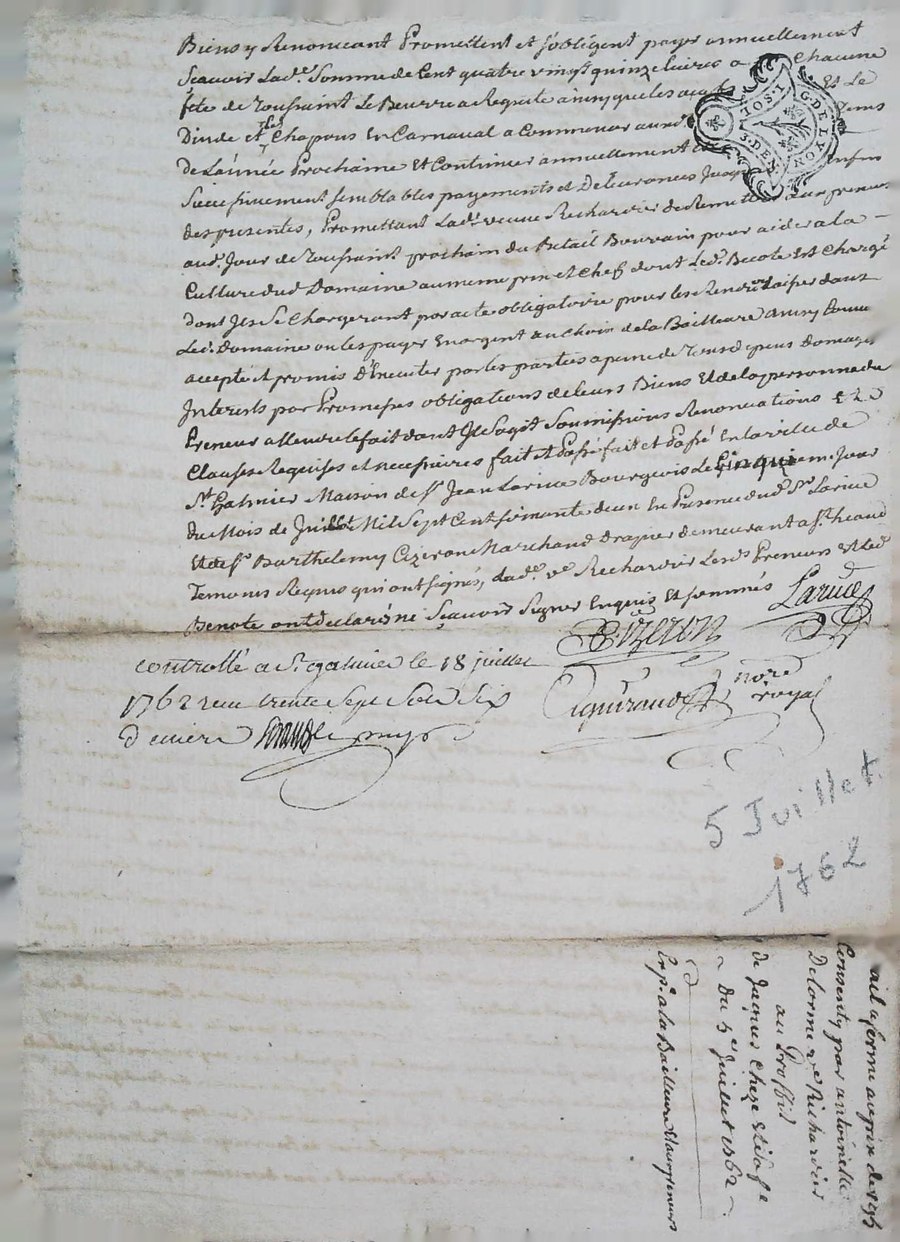 Biens y Renonceant Promettent et s'obligent payer annuellement
Scavoir Lad.e Somme de Cent quatre vingt quinze Livres a Chacune
fête de Toussaint Le Beurre a Requete ainsy que les Et Le
Dinde et Les Chapons En Carnaval a Commencer aux
de L'année Prochaine Et Continuer annuellement
Successivement semblables payements et Delivrances Jusq
des presentes, Promettant Lad.e veuve Recharvier de Remettre aux preneurs
aud. Jour de Toussaint prochain du Betail Bouvain pour aider a la
Culture dud Domaine au meme prix et Chef dont Led. Becote Est Chargé
dont Ils Se Chargeront par acte obligatoire pour les Rendre Laisser dans
Led. Domaine ou les payer En argent au choix de la Bailleure ainsy Convenu
accepté et promis D'Executer par les parties a peine de Tous depens Domages
Interests par Promesses obligations de leurs Biens Et de la personne du
Preneur attendu le fait dont Il S'agit Soumissions Renonciations Et
Clauses Requises et necessaires fait et Passé fait et Passé En la ville de
St. Galmier Maison de Sr. Jean Larive Bourgeois Le Cinquieme Jour
du Mois de Juillet Mil Sept Cent soixante deux En Presence dud. Sr. Larive
Et de Sr. Barthelemy Cizeron Marchand Drapier demeurant a St. heand
Temoins Requis qui ont signés, Lad.e ve Recharvier Lesd. Preneurs et Led.
Benote ont declaré ni Scavoir Signer Enquis Et sommés
Larive
BCizeron
controllé a St. galmier le 18 juillet
1762 reçu trente Sept Sols Six
deniers
nore
royal
JOS. I
G. DE LYON
3. DEN.
5 Juillet
1762
ail a ferme au prix de 195
Consenty par antoinette
Delorme ve Richarvier
au Proffit
de Jacques Cheze Et sa fe
Du 5e Juillet 1762
Exp.n a la Bailleure Et aux preneurs